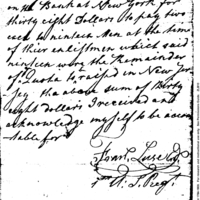 on the Bank at New York for
thirty eight Dollars to pay two
each to ninteen Men at the time
of thier enlistmen which said
ninteen were the Remainder
of Quota to raised in New Jer
sey the above sum of thirty
eight dollars I received and
acknowledge myself to be accon
table for